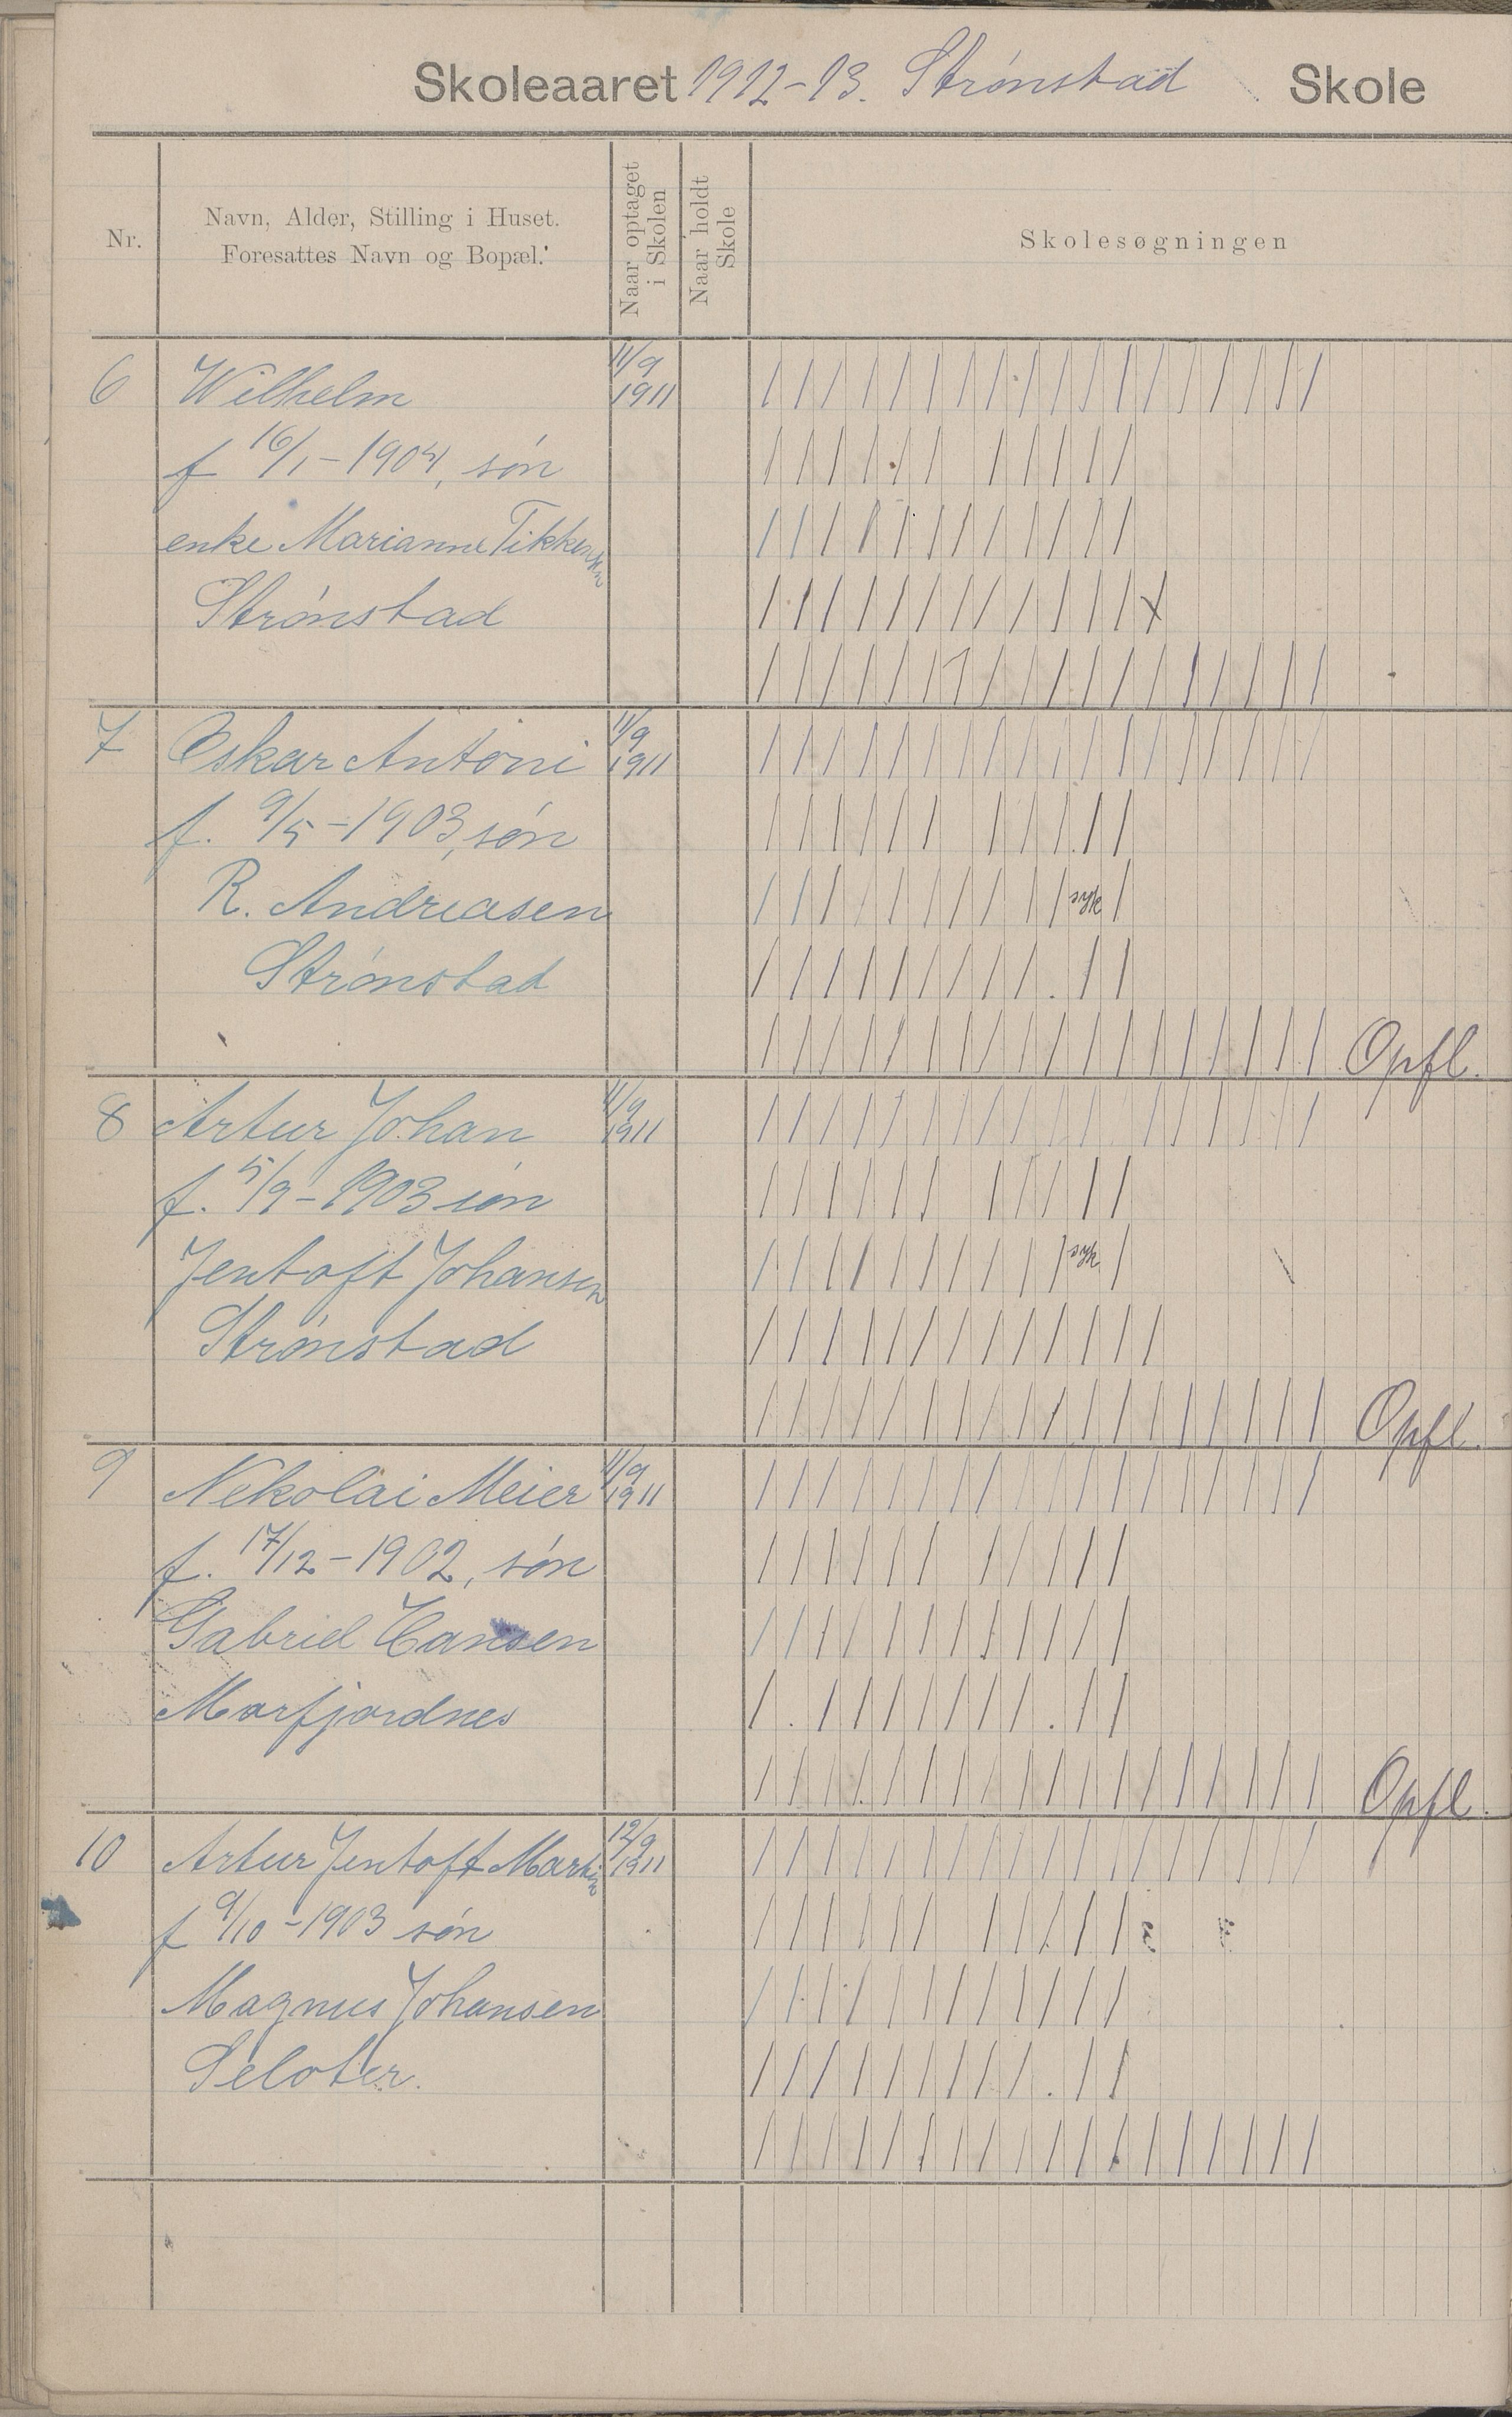 Skoleaaret 1912-13. Strønstad Skole
Nr.
Navn, Alder, Stilling i Huset.
Foresattes Navn og Bopæl.
Naar optaget
i Skolen
Naar holdt
Skole
Skolesøgningen
6 Wilhelm 11/9 1911
f 16/1-1904, søn
enke Marianne
Strønstad
7 Oskar Antoni 11/9 1911
f. 9/5-1903, søn
R. Andreasen syk
Strønstad
Opfl.
8 Artur Johan 11/9 1911
f. 5/9-1903 søn
Jentoft Johansen syk
Strønstad
Opfl.
9 Nekolai Meier 11/9 1911
f. 17/12-1902, søn
Gabriel Hansen
Morfjordnes
Opfl.
10 Artur Jentoft Martin 12/9 1911
f 9/10-1903 søn
Magnus Johansen
Seloter.